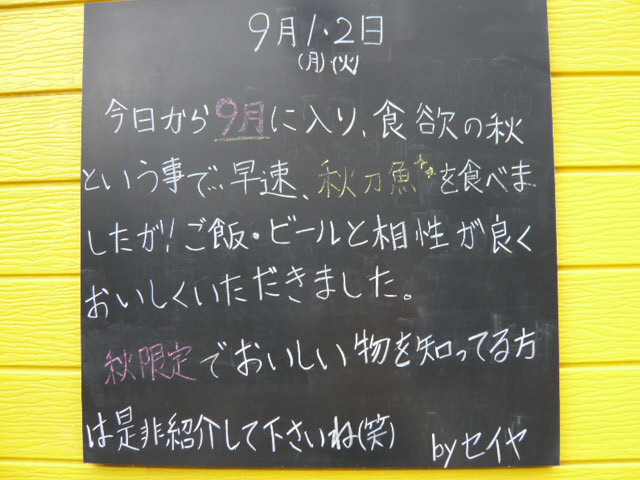 9月1・2日
(月)(火)
今日から9月に入り、食欲の秋
という事で…早速、秋刀魚を食べま
したが!ご飯・ビールと相性が良く
おいしくいただきました。
秋限定でおいしい物を知ってる方
は是非紹介して下さいね(笑)
byセイヤ